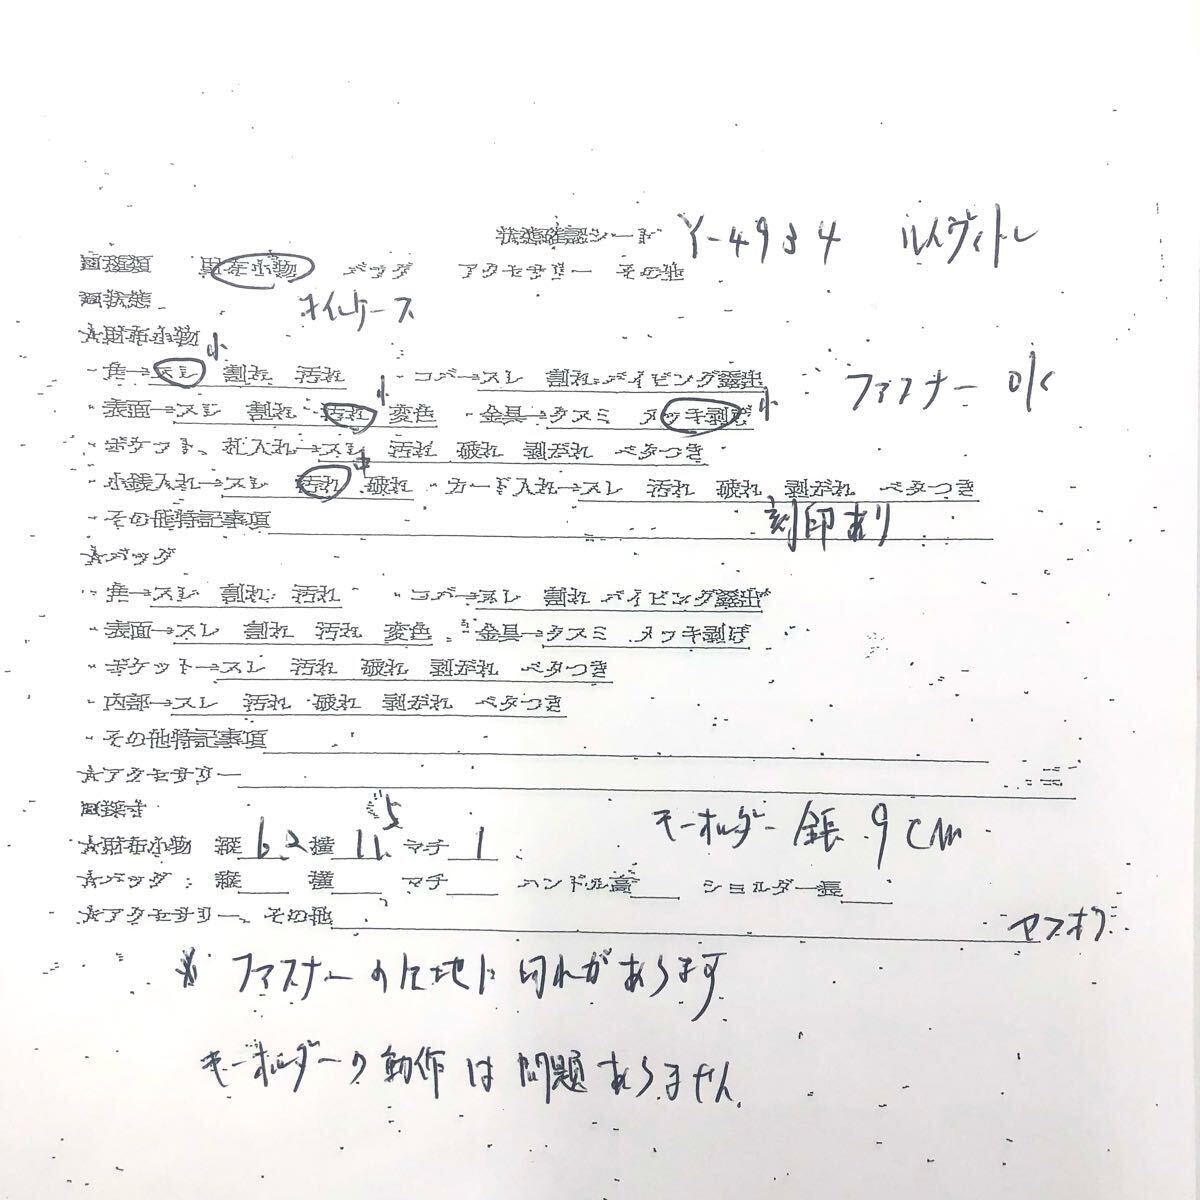 状態確認シート Y-4934 ルイヴィトン
□種類 財布小物 バッグ アクセサリー その他
□状態 コインケース
☆財布小物
・角→スレ 小 割れ 汚れ ・コバ→スレ 割れ パイピング露出 ファスナー OK
・表面→スレ 割れ 汚れ 小 変色 ・金具→クスミ メッキ剥げ 小
・ポケット、札入れ→スレ 汚れ 破れ 剥がれ ベタつき
・小銭入れ→スレ 汚れ 中 破れ ・カード入れ→スレ 汚れ 破れ 剥がれ ベタつき
・その他特記事項 刻印あり
☆バッグ
・角→スレ 割れ 汚れ ・コバ→スレ 割れ パイピング露出
・表面→スレ 割れ 汚れ 変色 ・金具→クスミ メッキ剥げ
・ポケット→スレ 汚れ 破れ 剥がれ ベタつき
・内部→スレ 汚れ 破れ 剥がれ ベタつき
・その他特記事項
☆アクセサリー
□採寸
☆財布小物 縦 6.2 横 11.5 マチ 1 キーホルダー 全長 9cm
☆バッグ: 縦 横 マチ ハンドル高 ショルダー長
☆アクセサリー、その他 ヤフオク
※ ファスナーの生地に切れがあります
キーホルダーの動作は問題ありません。